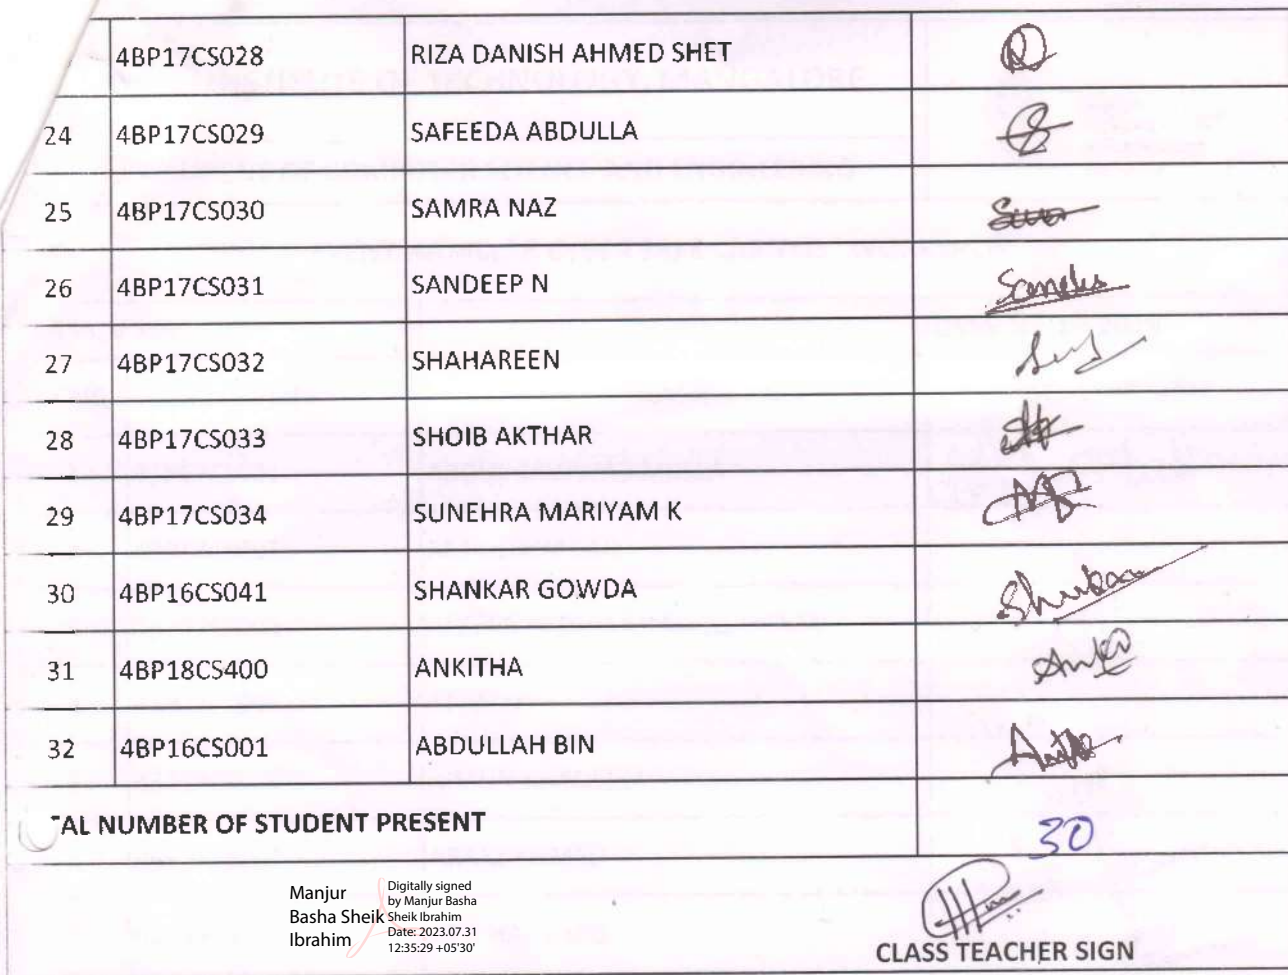 4BP17CS028 RIZA DANISH AHMED SHET
24 4BP17CS029 SAFEEDA ABDULLA
25 4BP17CS030 SAMRA NAZ
26 4BP17CS031 SANDEEP N
27 4BP17CS032 SHAHAREEN
28 4BP17CS033 SHOIB AKTHAR
29 4BP17CS034 SUNEHRA MARIYAM K
30 4BP16CS041 SHANKAR GOWDA
31 4BP18CS400 ANKITHA
32 4BP16CS001 ABDULLAH BIN
TAL NUMBER OF STUDENT PRESENT 30
Manjur
Basha Sheik
Ibrahim
Digitally signed
by Manjur Basha
Sheik Ibrahim
Date: 2023.07.31
12:35:29 +05'30'
CLASS TEACHER SIGN